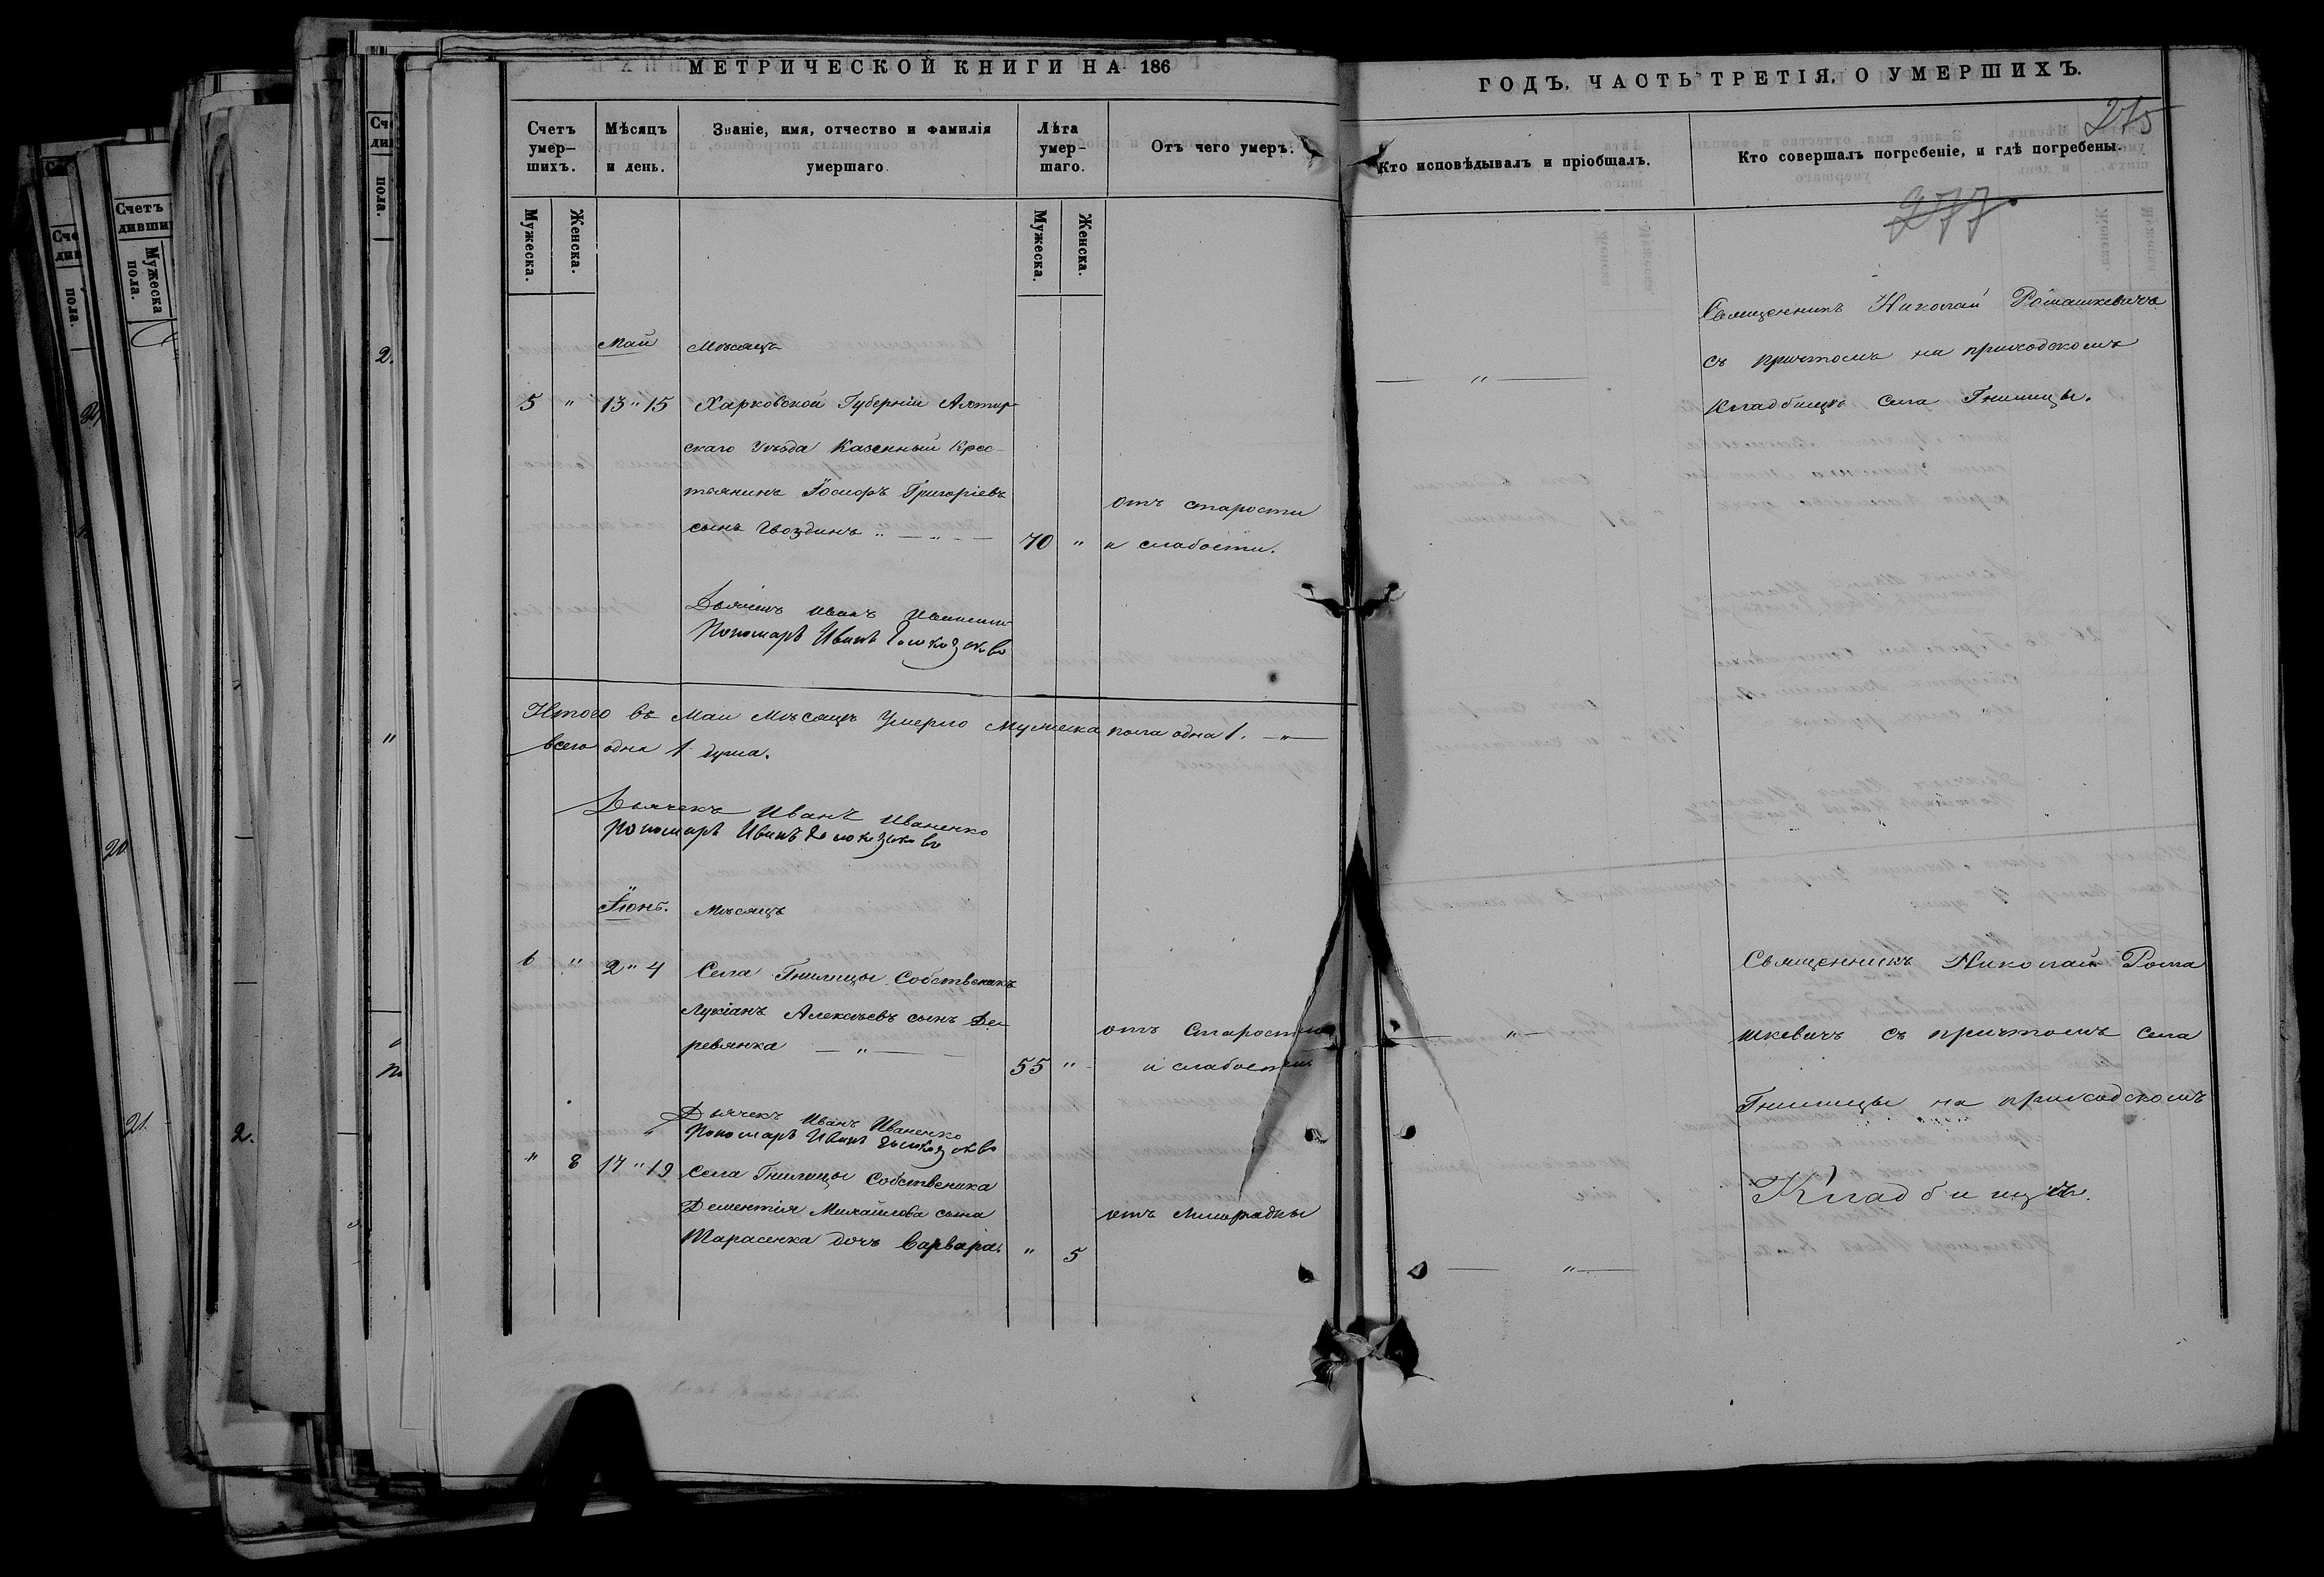 МЕТРИЧЕСКОЙ КНИГИ НА 186
Счетъ умер-шихъ.
Мѣсяцъ и день.
Званіе, имя, отчество и фамилія умершаго.
Лѣта умер-шаго.
Отъ чего умеръ.
Мужеска.
Женска.
Мужеска.
Женска.
Май Мѣсяцъ
5 " 13 " 15 Харковской Губерніи Ахтыр-
скаго Уѣзда Казенный Крес-
тьянинъ Іосифъ Григоріевъ
сынъ Гвоздинъ " — " —
70 "
отъ старости
и слабости.
Дьячекъ Иванъ Иваненко
Пономарь Иванъ
Итого въ Маи Мѣсяцѣ Умерло Мужеска пола одна 1. — " —
всего одна 1 душа.
Дьячекъ Иванъ Иваненко
Пономарь Иванъ
Іюнь. Мѣсяцъ
6 " 2 " 4 Села Гнилицы Собственикъ
Лукіанъ Алексѣевъ сынъ Де-
ревянка — " —
55 "
отъ Старости
и слабости
Дьячекъ Иванъ Иваненко
Пономарь Иванъ
" 8 17 " 19 Села Гнилицы Собственика
Дементія Михайлова сына
Тарасенка дочь Варвара.
" 5
отъ лихорадки
ГОДЪ. ЧАСТЬ ТРЕТІЯ, О УМЕРШИХЪ.
275
Кто исповѣдывалъ и пріобщалъ.
Кто совершалъ погребеніе, и гдѣ погребены.
277
— " —
Священникъ Николай Ромашкевичъ
съ причтомъ на приходскомъ
кладбищѣ села Гнилицы.
— " —
Священникъ Николай Рома
шкевичъ съ причтомъ села
Гнилицы на приходскомъ
Кладбищѣ.
— " —
Счетъ
дивши
Мужеска
пола.
пола.
пола.
2.
20
21.
2.